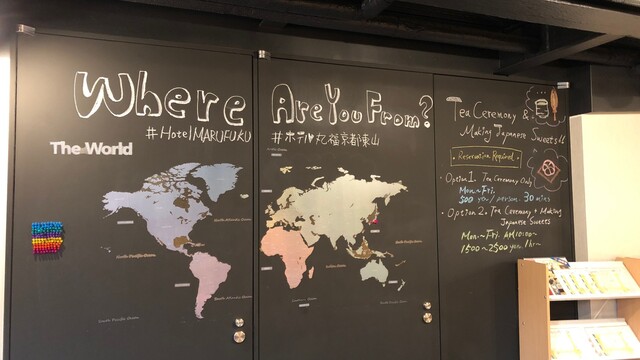 Where Are You From?
#HotelMARUFUKU
#ホテル丸福京都東山
The World
South Pacific Ocean
Tea Ceremony &
Making Japanese Sweets!!
・Reservation Required・
・Option 1. Tea Ceremony Only
Mon.~Fri.
500 yen/person. 30 mins
・Option 2. Tea Ceremony + Making
Japanese Sweets
Mon.~Fri. AM10:00~
1500~2500 yen. 1hr~